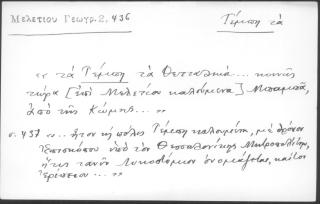 Μελετίου Γεωγρ. 2, 436
Τέμπη τὰ
« τὰ Τέμπη τὰ Θετταλικά... κοινῶς
τώρα [ἐπὶ Μελετίου καλούμενα] Μπαμπᾶ,
ἀπὸ τῆς Κώμης... »
σ. 437 «... ἦτον κὴ πόλις Τέμπη καλουμένη, μὲ θρόνον
Ἐπισκόπου ὑπὸ τὸν Θεσσαλονίκης Μητροπολίτην,
ἥτις τανῦν Λυκοστόμιον ὀνομάζεται, καίτοι
»